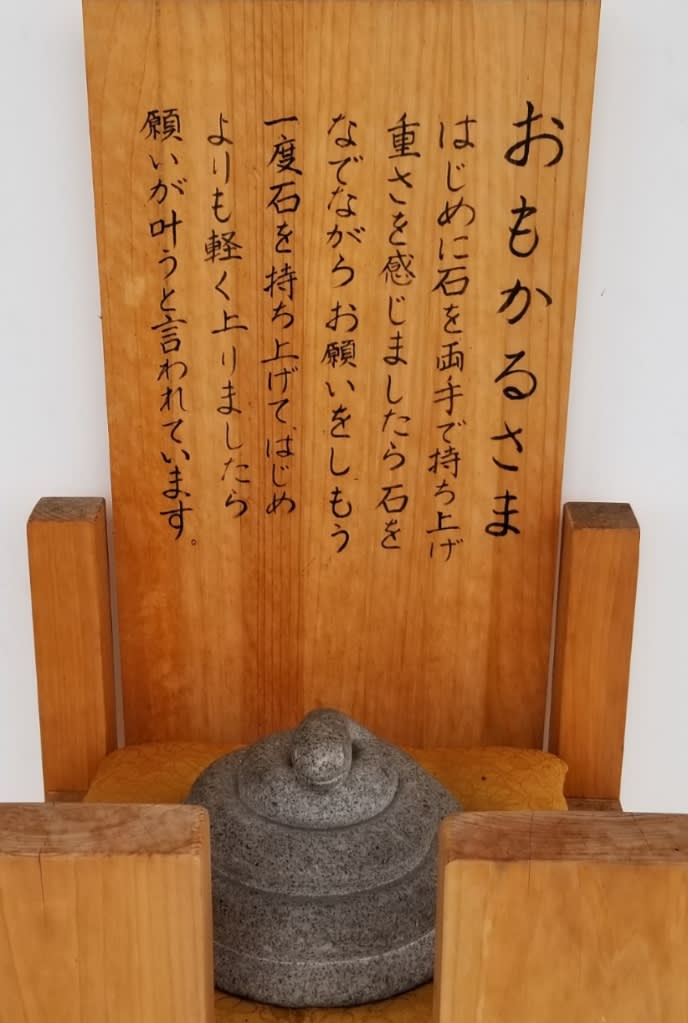 おもかるさま
はじめに石を両手で持ち上げ
重さを感じましたら石を
なでながらお願いをしもう
一度石を持ち上げて、はじめ
よりも軽く上りましたら
願いが叶うと言われています。